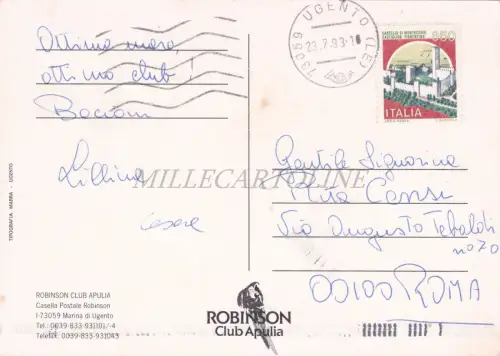 Ottimo mare
ottimo club!
Bacioni
Lilliana
Cesare
73059 UGENTO (LE)
23.7.93-16
CASTELLO DI MONTECCHIO
CASTIGLION FIORENTINO
650
ITALIA
Gentile Signorina
Rita Censi
Via Augusto Tebaldi
n° 70
00100 ROMA
MILLECARTOLINE
TIPOGRAFIA MARRA - UGENTO
ROBINSON CLUB APULIA
Casella Postale Robinson
I-73059 Marina di Ugento
Tel.: 0039-833-931101/-4
Telefax: 0039-833-931043
ROBINSON
Club Apulia